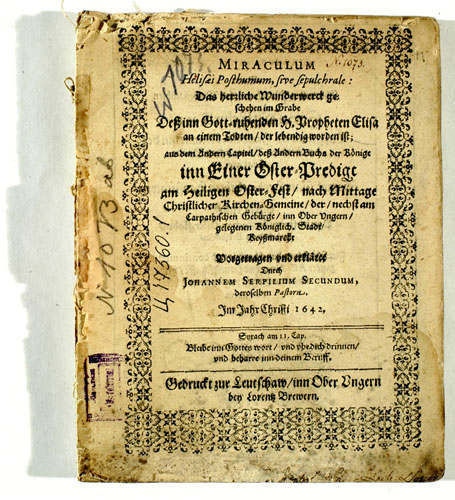 MIRACULUM
N. 1073.
Helisæi Posthumum, sive sepulchrale:
Das herrliche Wunderwerck ge-
schehen im Grabe
Deß inn Gott-ruhenden H. Propheten Elisa
an einem Todten / der lebendig worden ist;
aus dem Andern Capitel / deß Andern Buchs der Könige
inn Einer Oster-Predige
am Heiligen Oster-Fest / nach Mittage
Christlicher Kirchen-Gemeine / der / nechst am
Carpathischen Gebürge / inn Ober Vngern /
gelegenen Königlich. Stadt /
Keyßmarckt
Vorgetragen und erkläret
Durch
JOHANNEM SERPILIUM SECUNDUM,
deroselben Pastorn.
Im Jahr Christi 1642,
Syrach am 11. Cap.
Bleibe inn Gottes wort / und vbe dich drinnen /
und beharre inn deinem Beruff.
Gedruckt zur Leutschaw / inn Ober Vngern
bey Lorentz Brewern.